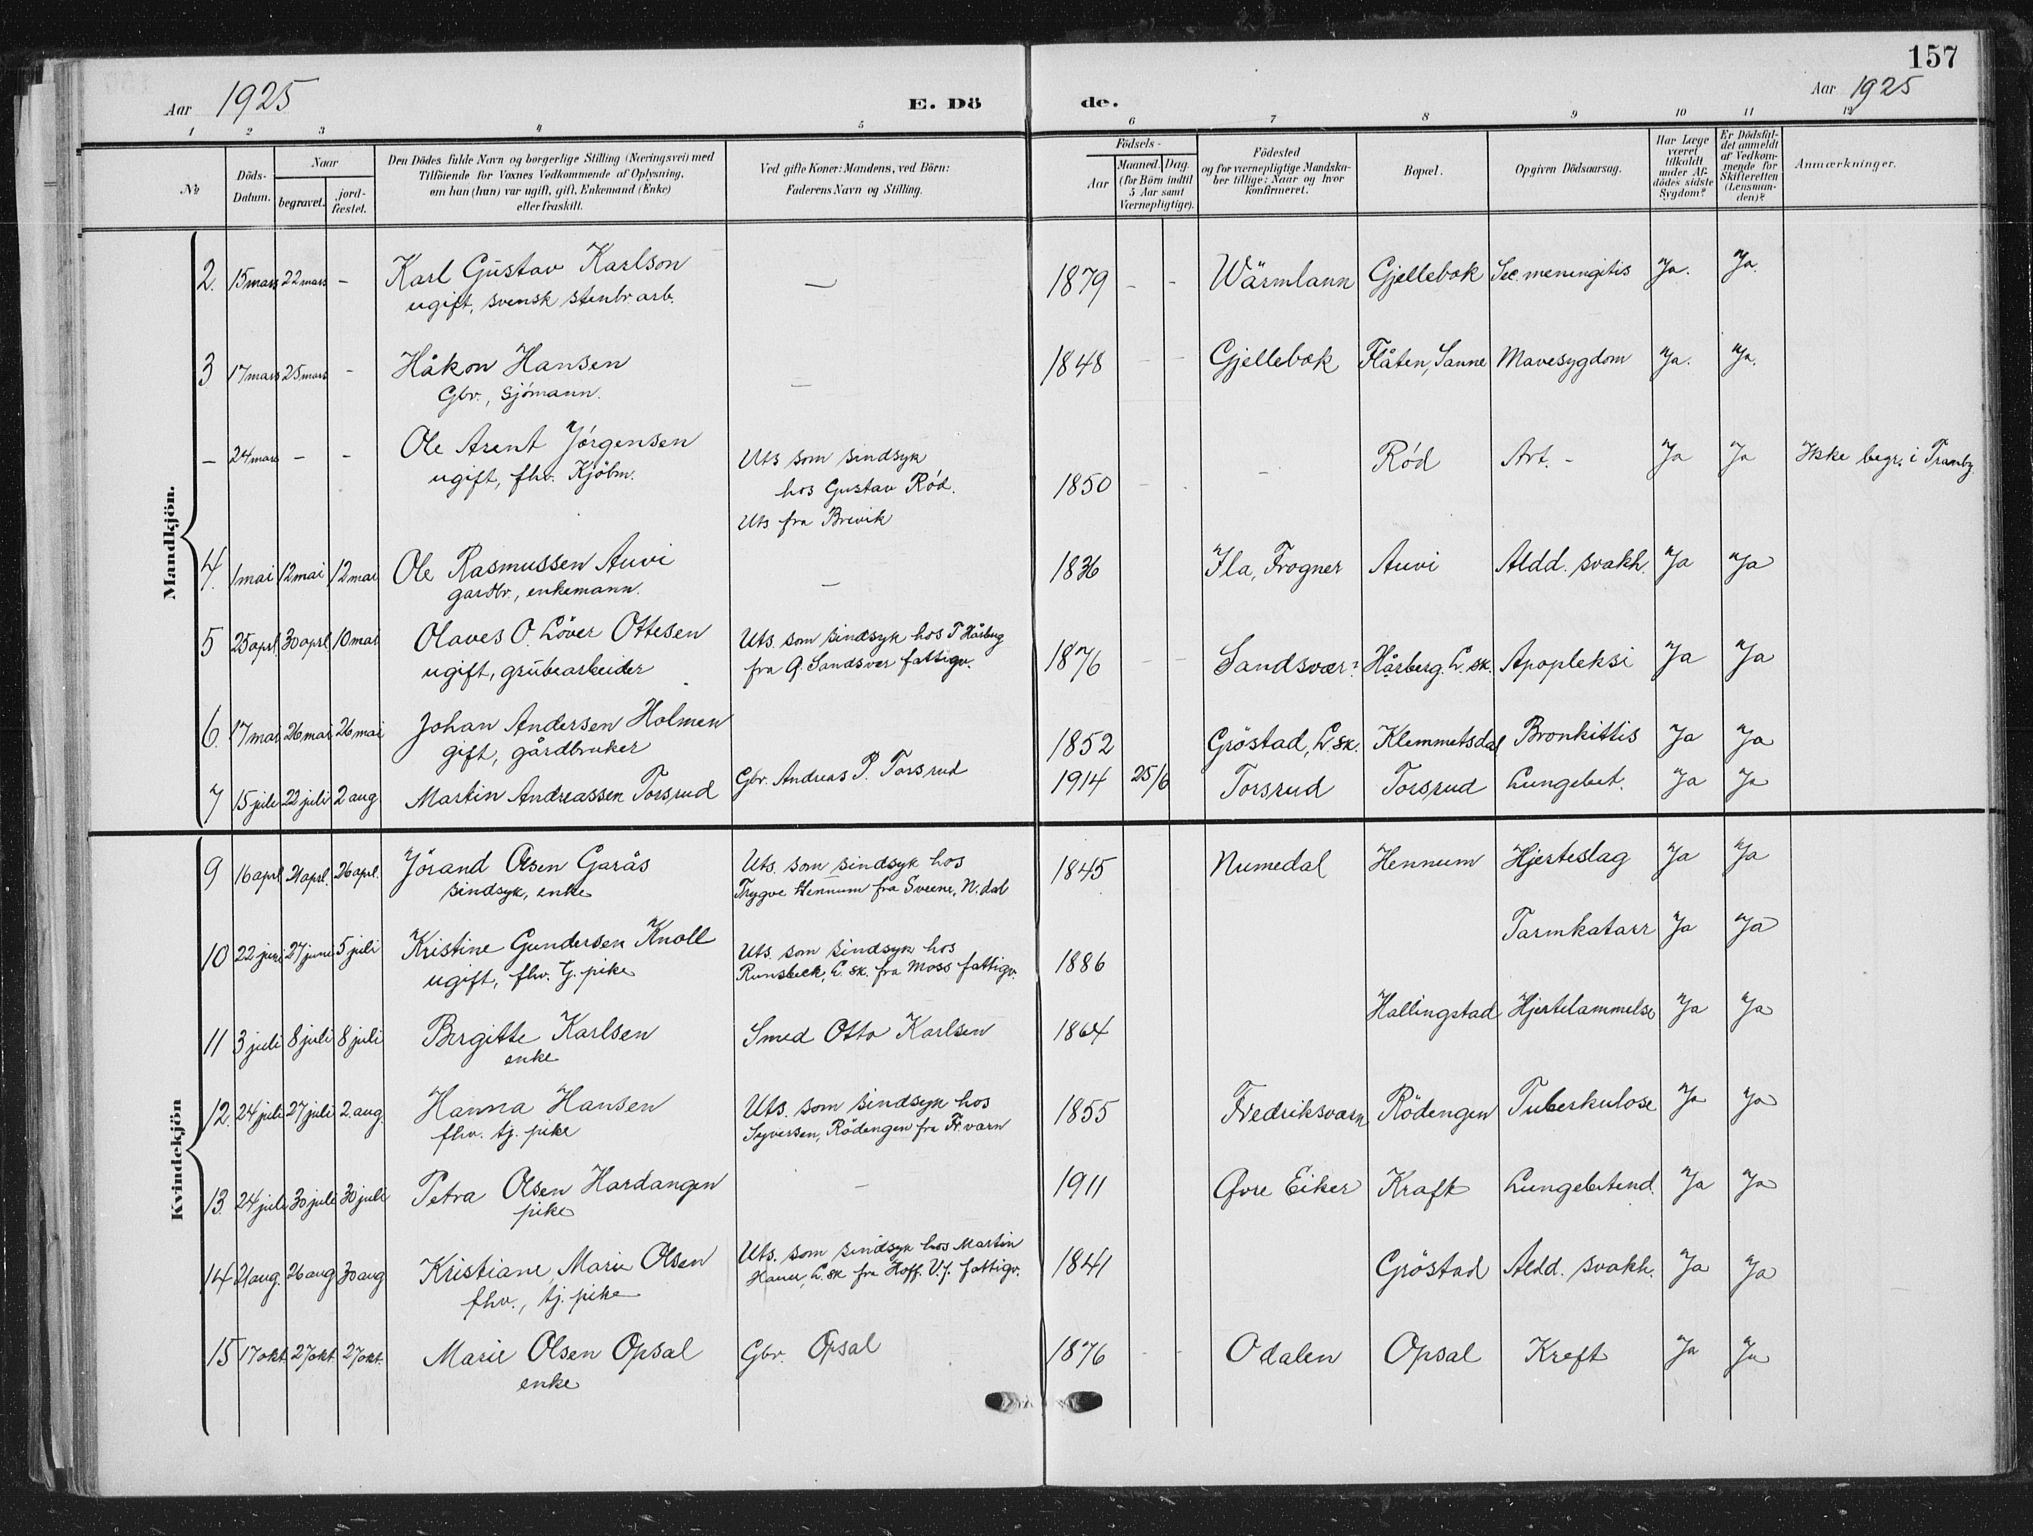 157
Aar 1925
E. Dö de.
Aar 1925
1 2 3 4 5 6 7 8 9 10 11 12
No
Döds-Datum.
Naar
begravet.
jord-fæstet.
Den Dödes fulde Navn og borgerlige Stilling (Næringsvei) med
Tilföiende for Voxnes Vedkommende af Oplysning,
om han (hun) var ugift, gift, Enkemand (Enke)
eller fraskilt.
Ved gifte Koner: Mandens, ved Börn:
Faderens Navn og Stilling.
Födsels-
Aar
Maaned. Dag.
(for Börn indtil
5 Aar samt
Værnepligtige).
Födested
og for værnepligtige Mandska-
ber tillige: Naar og hvor
konfirmeret.
Bopæl.
Opgiven Dödsaarsag.
Har Læge
været
tilkaldt
under Af-
dödes sidste
Sygdom?
Er Dödsfal-
det anmeldt
af Vedkom-
mende for
Skifteretten
(Lensman-
den)?
Anmærkninger.
Mandkjön.
2. 15 mars 22 mars – Karl Gustav Karlson — 1879 - - Wärmlann Gjellebæk Sec. meningitis Ja. Ja.
ugift, svensk stenbr arb.
3 17 mars 25 mars - Håkon Hansen — 1848 - - Gjellebæk Flåten, Sanne Mavesygdom Ja. Ja.
Gbr., sjömann.
– 24 mars – - Ole Arent Jörgensen Uts som sindsyk 1850 - - - Röd Art. - Ja Ja Ikke begr. i Tranby
ugift, fhv. Kjöbm. hos Gustav Röd.
Uts fra Brevik
4. 1 mai 12 mai 12 mai Ole Rasmussen Auvi – 1836 Ila, Frogner Auvi Aldd. svakh. Ja Ja
gardbr., enkemann.
5 25 aprl. 30 aprl 10 mai Olaves O. Löver Ottesen Uts. som sindsyk hos T Hårberg 1876 - - Sandsvær: Hårberg. L. sk. Apopleksi Ja Ja
ugift, grubearbeider fra Q. Sandsver fattigv.
6. 17 mai 26 mai 26 mai Johan Andersen Holmen 1852 Gröstad, L sk. Klemmetsdal Bronkittis Ja Ja
gift, gårdbruker
7 15 juli 22 juli 2 aug. Martin Andreassen Torsrud Gbr. Andreas P. Torsrud 1914 25/6 Torsrud Torsrud Lungebet. Ja Ja
Kvindekjön
9 16 aprl 21 aprl. 26 aprl. Jörand Olsen Garås Uts. som sindsyk hos 1845 Numedal Hennum Hjerteslag Ja Ja
sindsyk, enke Trygve Hennum fra Sveene, N.dal
10 22 juni 27 juni 5 juli Kristine Gundersen Knoll Uts. som sindsyk hos 1886 Tarmkatarr Ja Ja
ugift, fhv. tj. pike Runsbeck, L. sk. fra Moss fattigv.
11 3 juli 8 juli 8 juli Birgitte Karlsen Smed Otto Karlsen 1864 Hallingstad Hjertelammelse Ja Ja
enke
12. 24 juli 27 juli 2. aug. Hanna Hansen Uts. som sindsyk hos 1855 Fredriksvarn Rödengen Tuberkulose Ja Ja
fhv. tj. pike Syversen, Rödengen fra Fr.varn
13. 24 juli 30 juli 30 juli Petra Olsen Hardangen – 1911 Øvre Eiker Kraft Lungebetend. Ja Ja
pike
14 21 aug. 26 aug 30 aug Kristiane Marie Olsen Uts. som sindsyk hos Martin 1841 Gröstad Aldd. svakh. Ja Ja
fhv., tj. pike Hauer, L. sk fra Hoff. V.f. fattigv.
15 17 okt. 27 okt. 27 okt. Marie Olsen Opsal Gbr. Opsal 1876 - - Odalen Opsal Kreft Ja Ja
enke